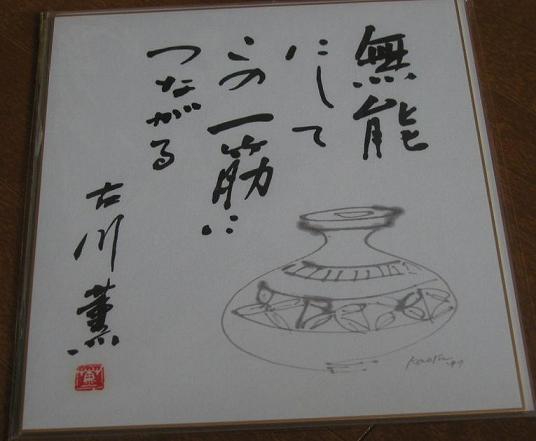 無能
にして
この一筋に
つながる
古川薫
Kaoru '97